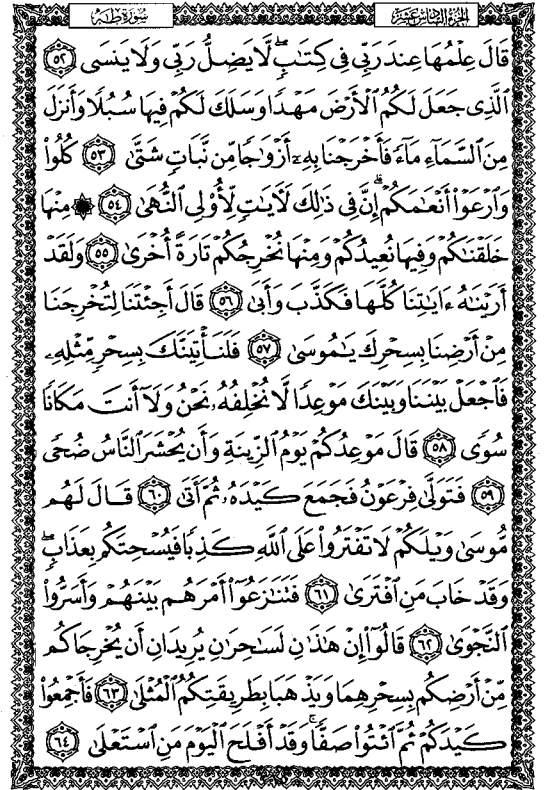 سُورَةُ طه
الجزء السادس عشر
قَالَ عِلْمُهَا عِندَ رَبِّى فِى كِتَٰبٍۖ لَّا يَضِلُّ رَبِّى وَلَا يَنسَى ٥٢
ٱلَّذِى جَعَلَ لَكُمُ ٱلْأَرْضَ مَهْدًا وَسَلَكَ لَكُمْ فِيهَا سُبُلًا وَأَنزَلَ
مِنَ ٱلسَّمَآءِ مَآءً فَأَخْرَجْنَا بِهِۦٓ أَزْوَٰجًا مِّن نَّبَاتٍ شَتَّىٰ ٥٣ كُلُوا۟
وَٱرْعَوْا۟ أَنْعَٰمَكُمْۗ إِنَّ فِى ذَٰلِكَ لَءَايَٰتٍ لِّأُو۟لِى ٱلنُّهَىٰ ٥٤ ۞ مِنْهَا
خَلَقْنَٰكُمْ وَفِيهَا نُعِيدُكُمْ وَمِنْهَا نُخْرِجُكُمْ تَارَةً أُخْرَىٰ ٥٥ وَلَقَدْ
أَرَيْنَٰهُ ءَايَٰتِنَا كُلَّهَا فَكَذَّبَ وَأَبَىٰ ٥٦ قَالَ أَجِئْتَنَا لِتُخْرِجَنَا
مِنْ أَرْضِنَا بِسِحْرِكَ يَٰمُوسَىٰ ٥٧ فَلَنَأْتِيَنَّكَ بِسِحْرٍ مِّثْلِهِۦ
فَٱجْعَلْ بَيْنَنَا وَبَيْنَكَ مَوْعِدًا لَّا نُخْلِفُهُۥ نَحْنُ وَلَآ أَنتَ مَكَانًا
سُوًى ٥٨ قَالَ مَوْعِدُكُمْ يَوْمُ ٱلزِّينَةِ وَأَن يُحْشَرَ ٱلنَّاسُ ضُحًى
٥٩ فَتَوَلَّىٰ فِرْعَوْنُ فَجَمَعَ كَيْدَهُۥ ثُمَّ أَتَىٰ ٦٠ قَالَ لَهُم
مُّوسَىٰ وَيْلَكُمْ لَا تَفْتَرُوا۟ عَلَى ٱللَّهِ كَذِبًا فَيُسْحِتَكُم بِعَذَابٍۖ
وَقَدْ خَابَ مَنِ ٱفْتَرَىٰ ٦١ فَتَنَٰزَعُوٓا۟ أَمْرَهُم بَيْنَهُمْ وَأَسَرُّوا۟
ٱلنَّجْوَىٰ ٦٢ قَالُوٓا۟ إِنْ هَٰذَٰنِ لَسَٰحِرَٰنِ يُرِيدَانِ أَن يُخْرِجَاكُم
مِّنْ أَرْضِكُم بِسِحْرِهِمَا وَيَذْهَبَا بِطَرِيقَتِكُمُ ٱلْمُثْلَىٰ ٦٣ فَأَجْمِعُوا۟
كَيْدَكُمْ ثُمَّ ٱئْتُوا۟ صَفًّاۚ وَقَدْ أَفْلَحَ ٱلْيَوْمَ مَنِ ٱسْتَعْلَىٰ ٦٤